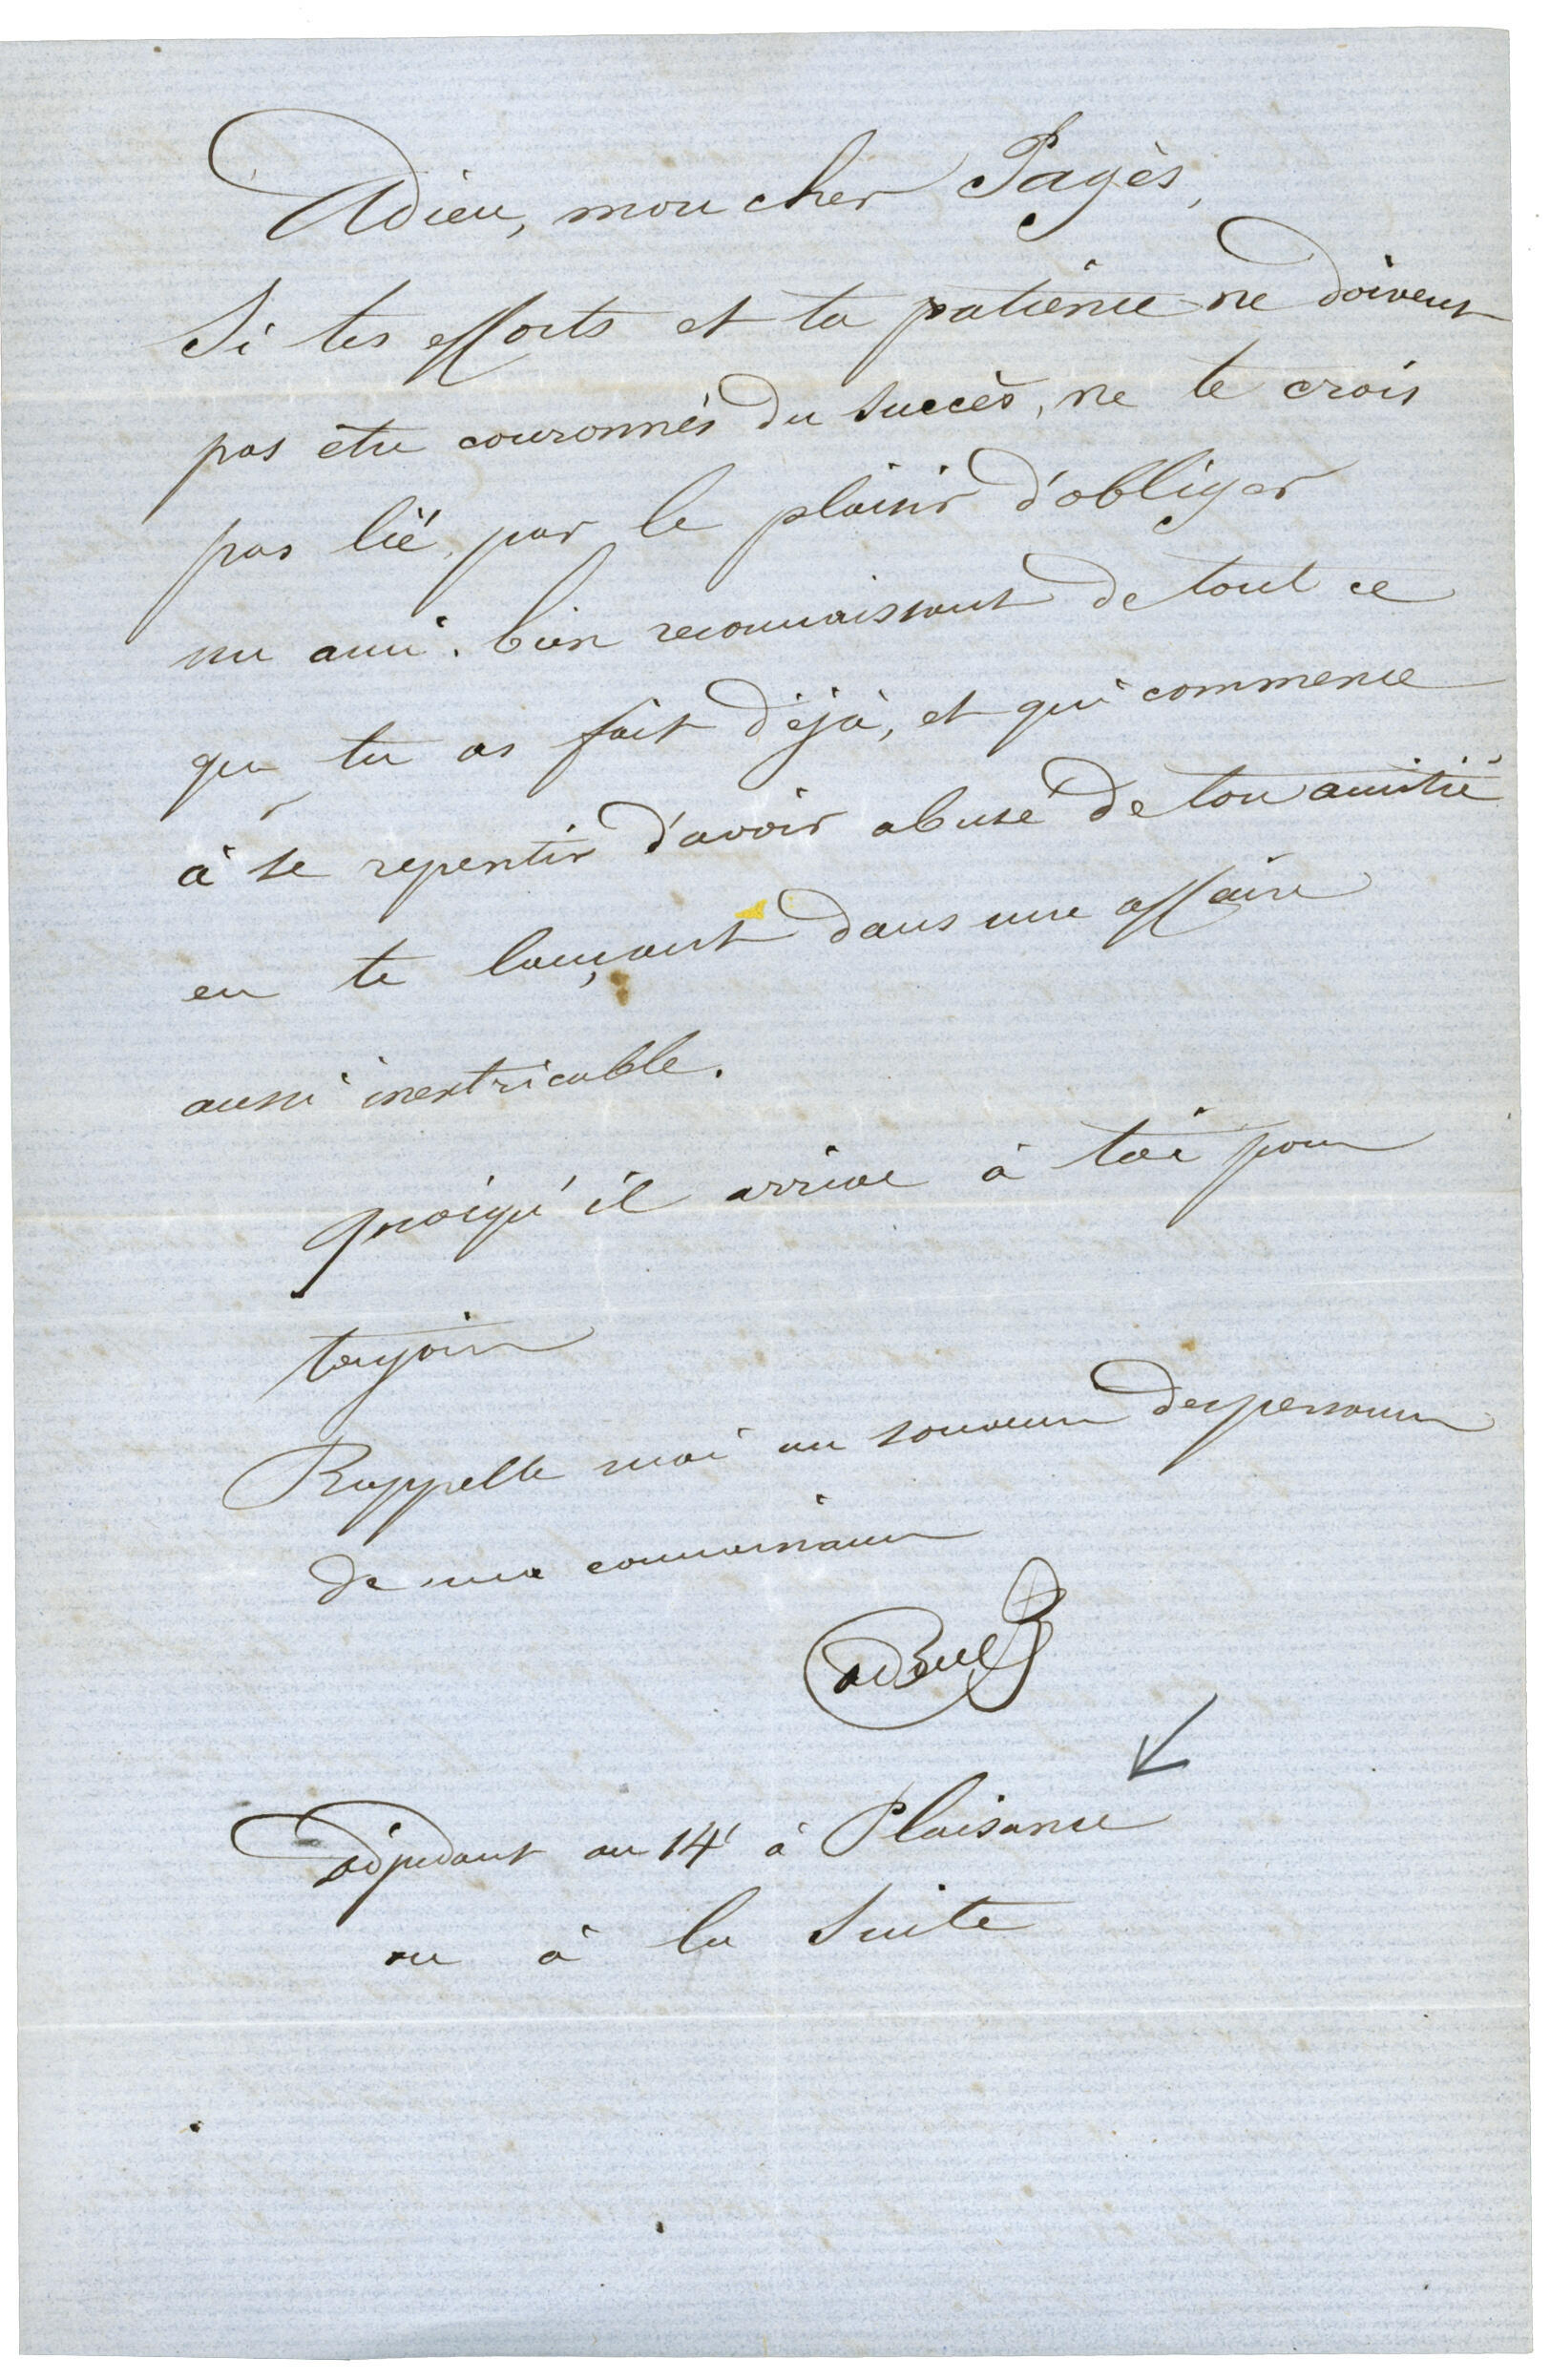 Adieu, mon cher Pagès,
Si tes efforts et ta patience ne doivent
pas être couronnés du succès, ne te crois
pas lié, par le plaisir d'obliger
un ami. bien reconnaissant de tout ce
que tu as fait déjà, et qui commence
à se repentir d'avoir abusé de ton amitié
en te lançant dans une affaire
aussi inextricable.
quoiqu'il arrive à toi pour
toujours
Rappelle moi au souvenir des personnes
de ma connaissance
adjudant au 14e à Plaisance
ou à la suite